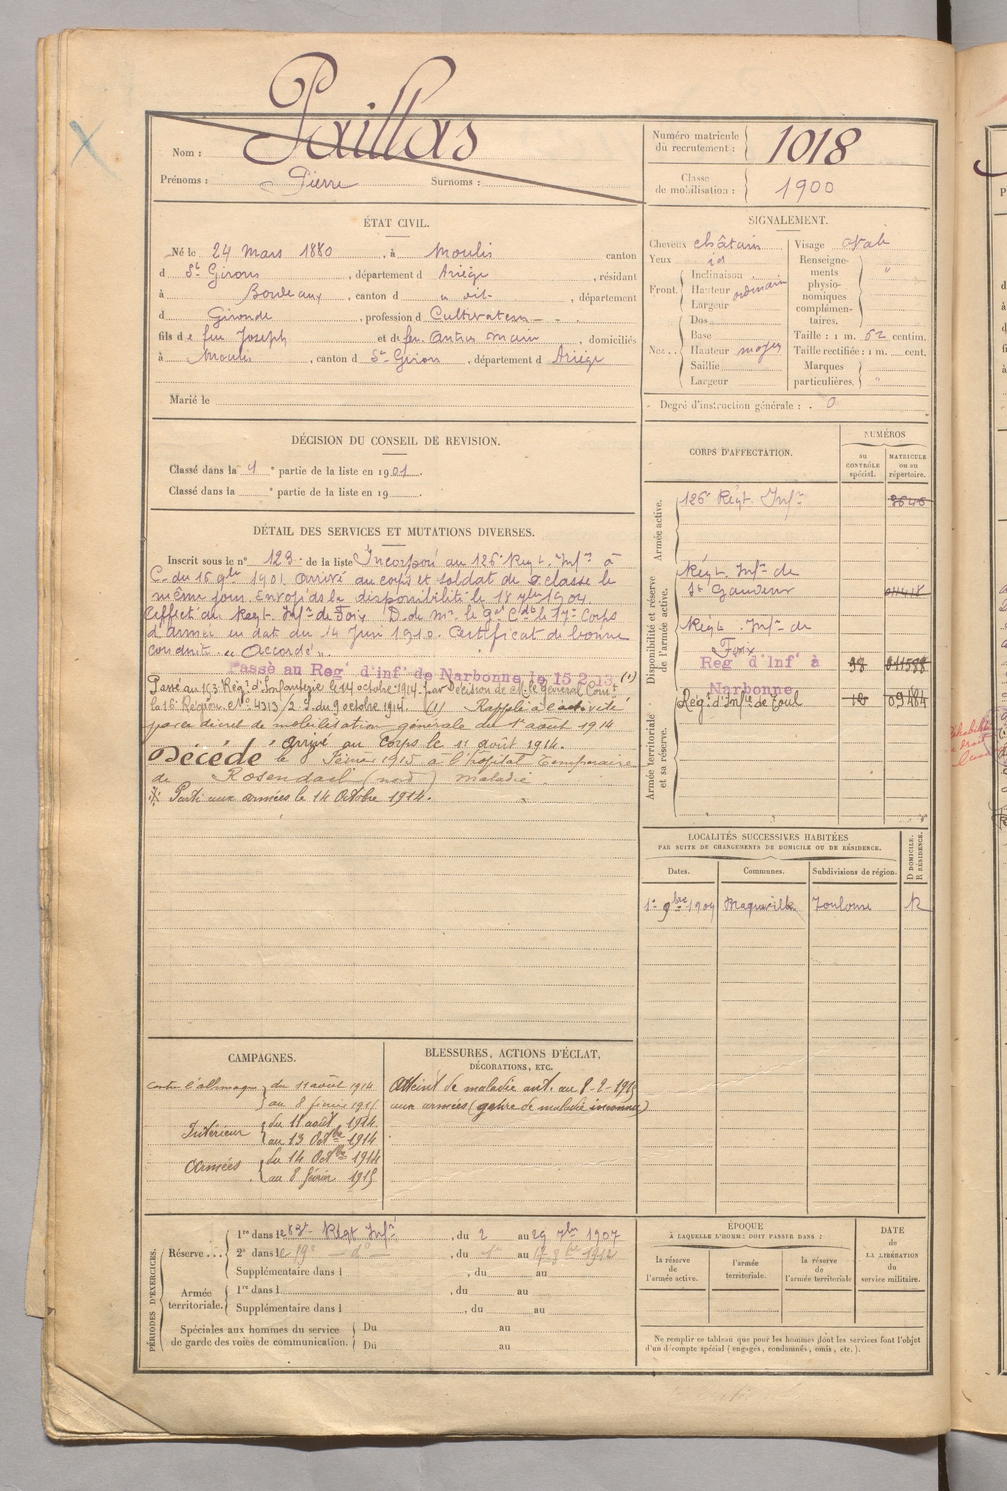 Paillas
Nom :
Prénoms : Pierre Surnoms :
Numéro matricule
du recrutement : 1018
Classe
de mobilisation : 1900
ÉTAT CIVIL.
Né le 24 Mars 1880, à Moulis canton
d St Girons, département d Ariège, résidant
à Bordeaux, canton d département
d Gironde, profession d Cultivateur
fils de feu Joseph et de feu domiciliés
à Moulis, canton d St Girons, département d Ariège
Marié le
SIGNALEMENT.
Cheveux châtain Visage ovale
Yeux id Renseigne-
ments
physio-
nomiques
complémen-
taires. "
Front. Inclinaison
Hauteur ordinaire
Largeur
Nez.. Dos
Base
Hauteur moyen
Saillie
Largeur
Taille : 1 m. 62 centim.
Taille rectifiée : 1 m. cent.
Marques
particulières. "
Degré d'instruction générale : 0
DÉCISION DU CONSEIL DE REVISION.
Classé dans la 1e partie de la liste en 1901.
Classé dans la e partie de la liste en 19
DÉTAIL DES SERVICES ET MUTATIONS DIVERSES.
Inscrit sous le n° 123 de la liste Incorporé au 126e Régt. Infie à
C. du 16 9bre 1901 arrivé au corps et soldat de 2e classe le
même jour. Envoi ds la disponibilité le 18 7bre 1904.
Affecté au Régt. Infie de Foix D. de Mr. le Gal Cdt le 17e Corps
d'armée en date du 14 Juin 1910. Certificat de bonne
conduite " Accordé ".
Passé au Regt d'Infie de Narbonne le 15.2.13 (1)
Passé au 163 Régt d'Infanterie le 14 octobre 1914. par Décision de M. le général Comt
la 16e Région. No 4313/2 J. du 9 octobre 1914. (1) Rappelé à l'activité
par décret de mobilisation générale du 1er août 1914
" " " Arrivé au Corps le 11 août 1914.
Décédé le 8 février 1915 à l'hôpital temporaire
de Rosendael (nord) maladie
Parti aux armées le 14 Octobre 1914.
CORPS D'AFFECTATION.
NUMÉROS
AU
CONTRÔLE
spécial.
MATRICULE
OU AU
répertoire.
Armée active.
126e Régt. Infie
Disponibilité et réserve
de l'armée active.
Régt. Infie de
St Gaudens
Régt. Infie de
Foix
Regt d'Infie à
Narbonne
Armée territoriale
et sa réserve.
Régt d'Infie de Toul
LOCALITÉS SUCCESSIVES HABITÉES
PAR SUITE DE CHANGEMENTS DE DOMICILE OU DE RÉSIDENCE.
Dates. Communes. Subdivisions de région. D DOMICILE. R RÉSIDENCE.
1er 9bre 1904 Toulouse R
CAMPAGNES.
Contre l'allemagne du 11 août 1914
au 8 février 1915
Intérieur du 11 août 1914
au 13 Octbre 1914
Armées du 14 Octbre 1914
au 8 février 1915
BLESSURES, ACTIONS D'ÉCLAT,
DÉCORATIONS, ETC.
Atteint de maladie ant. au 8-2-1915
aux armées (genre de maladie inconnu)
PÉRIODES D'EXERCICES.
Réserve... 1re dans le Régt Infie, du 2 au 29 7bre 1907
2e dans le , du au
Supplémentaire dans l , du au
Armée
territoriale. 1re dans l , du au
Supplémentaire dans l , du au
Spéciales aux hommes du service
de garde des voies de communication. Du au
Du au
ÉPOQUE
À LAQUELLE L'HOMME DOIT PASSER DANS :
la réserve
de
l'armée active.
l'armée
territoriale.
la réserve
de
l'armée territoriale
DATE
de
LA LIBÉRATION
du
service militaire.
Ne remplir ce tableau que pour les hommes dont les services font l'objet
d'un décompte spécial (engagés, condamnés, omis, etc.).